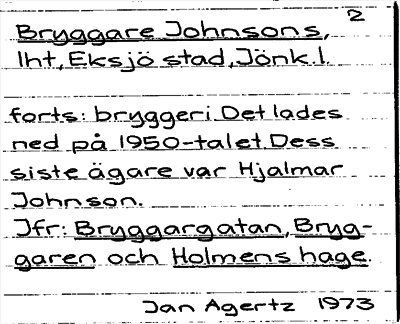 2
Bryggare Johnsons,
lht, Eksjö stad, Jönk. l.
forts: bryggeri. Det lades
ned på 1950-talet. Dess
siste ägare var Hjalmar
Johnson.
Jfr: Bryggargatan, Bryg-
garen och Holmens hage.
Jan Agertz 1973